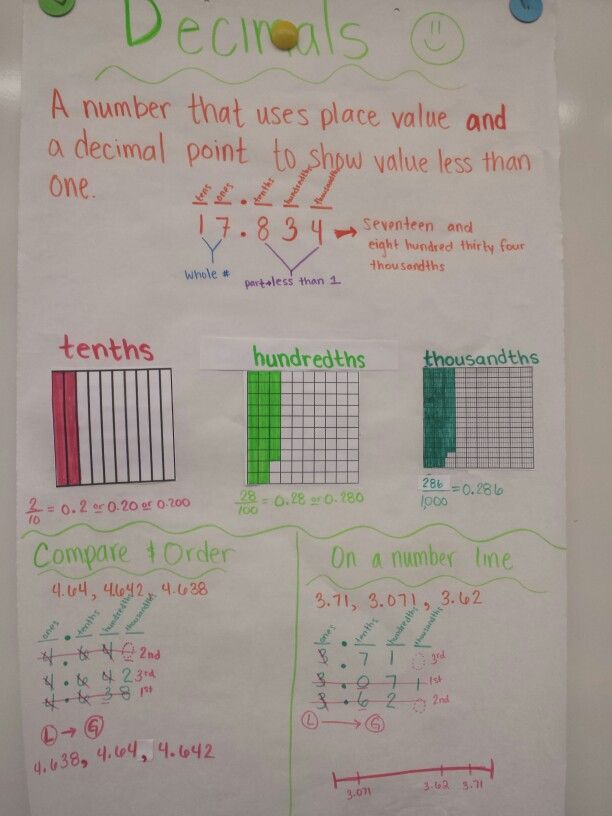 Decimals
A number that uses place value and
a decimal point to show value less than
one.
tens ones . tenths hundredths thousandths
17.834 → Seventeen and
eight hundred thirty four
thousandths
Whole #
part→less than 1
tenths
hundredths
thousandths
2/10 = 0.2 or 0.20 or 0.200
28/100 = 0.28 or 0.280
286/1000 = 0.286
Compare & Order
4.64, 4.642, 4.638
ones . tenths hundredths thousandths
4.640 2nd
4.642 3rd
4.638 1st
L → G
4.638, 4.64, 4.642
On a number line
3.71, 3.071, 3.62
ones . tenths hundredths thousandths
3.710 3rd
3.071 1st
3.620 2nd
L → G
3.071 3.62 3.71